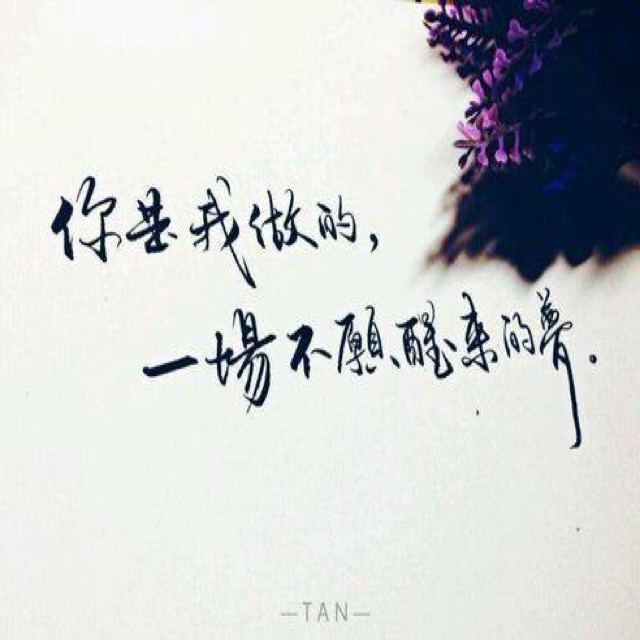 你是我做的，
一場不願醒來的夢。
—TAN—